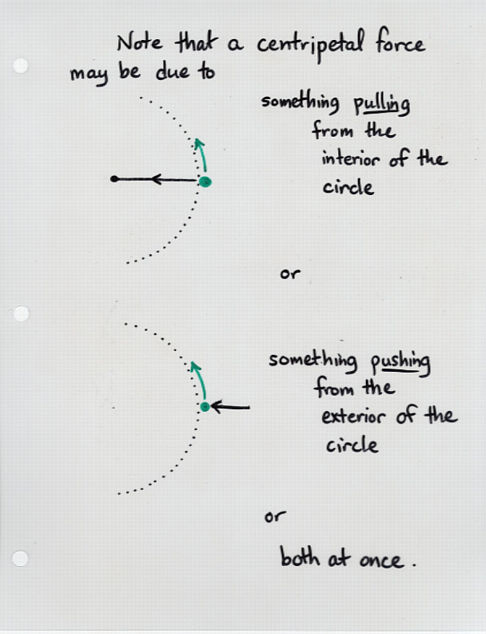 Note that a centripetal force
may be due to
something pulling
from the
interior of the
circle
or
something pushing
from the
exterior of the
circle
or
both at once.